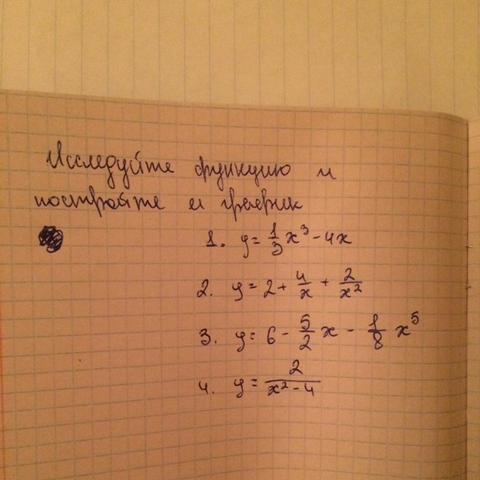 Исследуйте функцию и
постройте её график
1. y = 1/3 x³ - 4x
2. y = 2 + 4/x + 2/x²
3. y = 6 - 5/2 x - 1/8 x⁵
4. y = 2/(x² - 4)